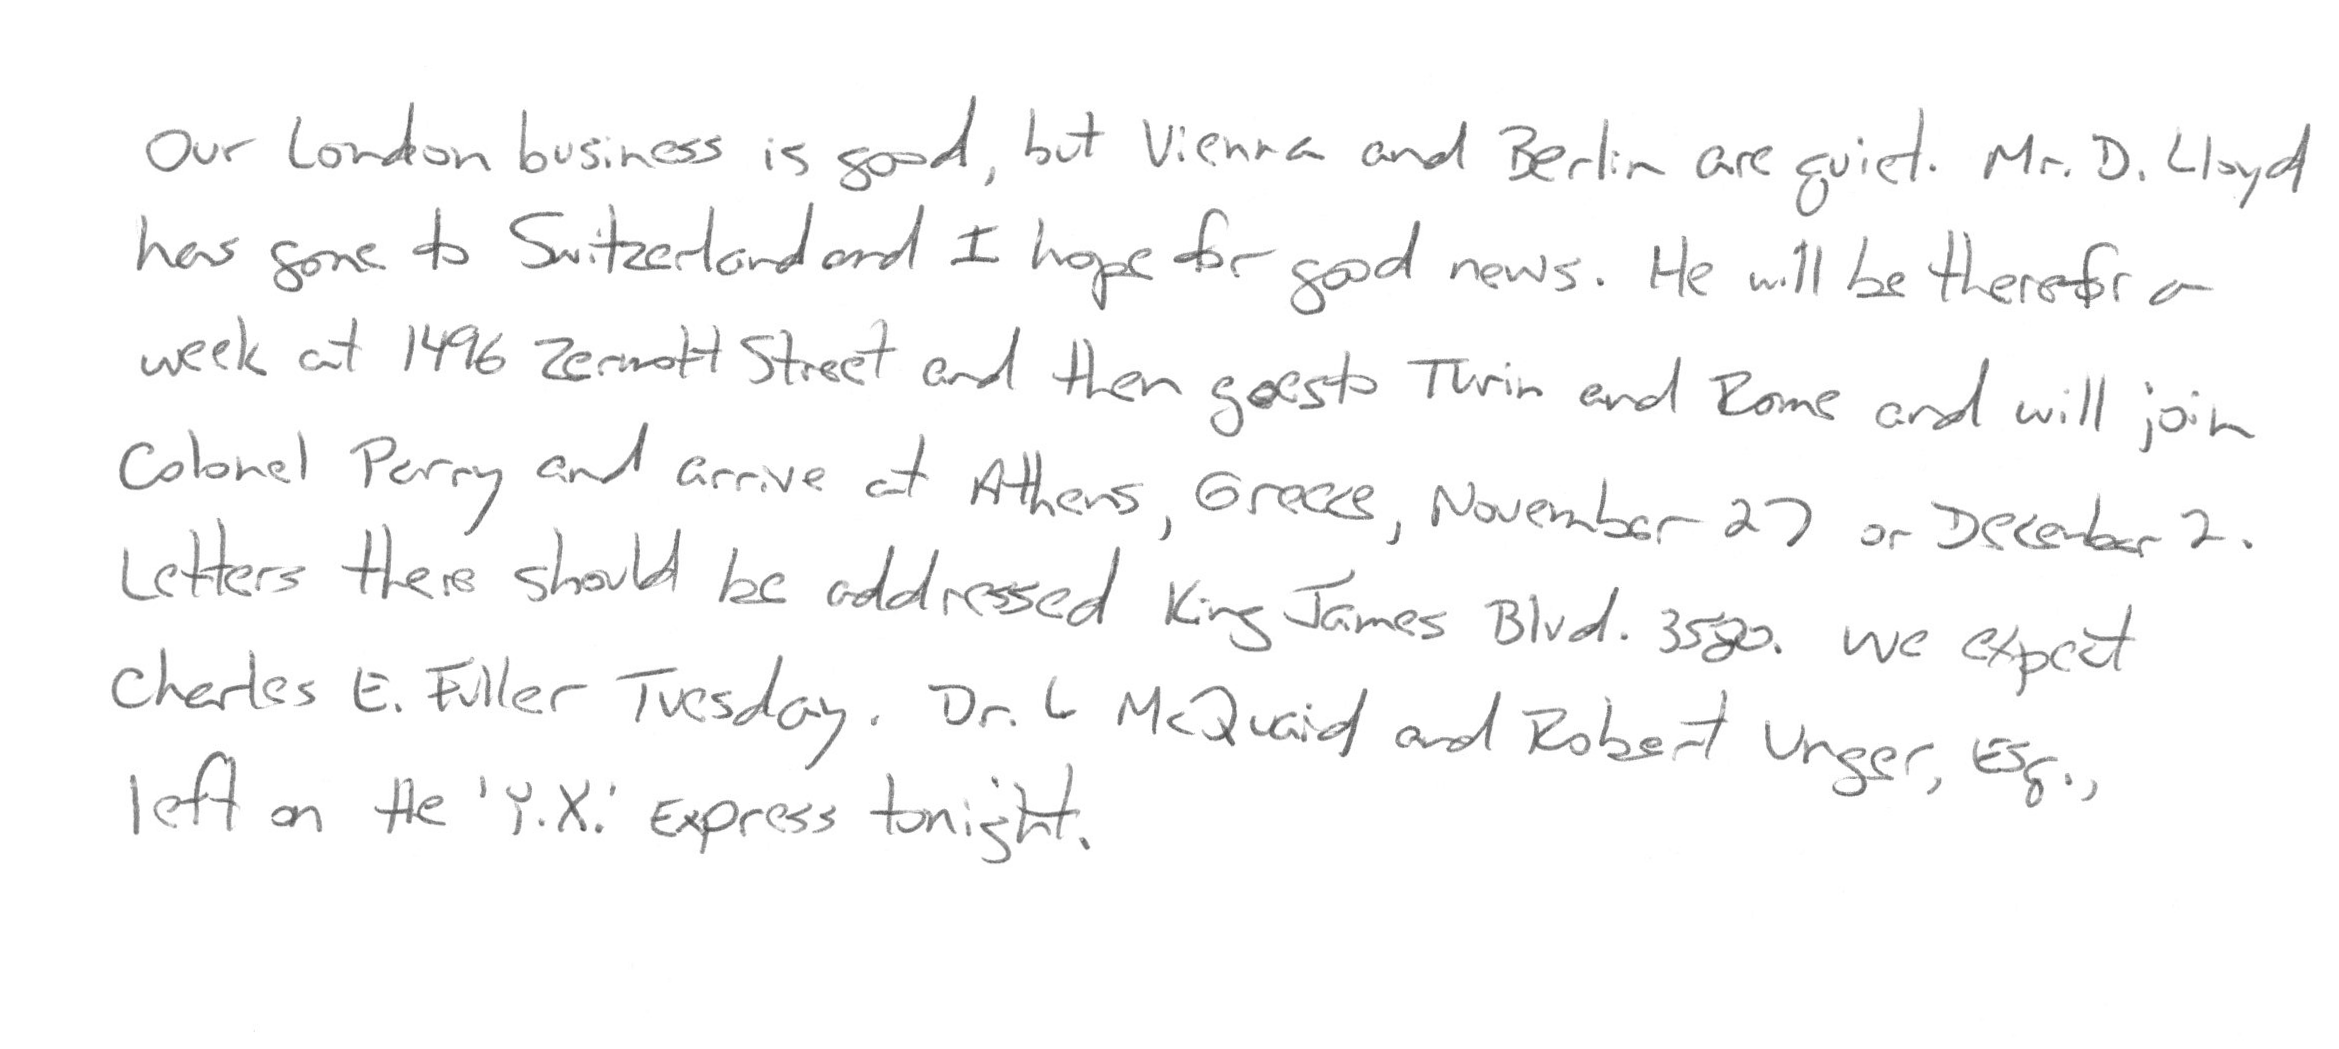 Our London business is good, but Vienna and Berlin are quiet. Mr. D. Lloyd
has gone to Switzerland and I hope for good news. He will be there for a
week at 1496 Zermott Street and then goes to Turin and Rome and will join
Colonel Parry and arrive at Athens, Greece, November 27 or December 2.
Letters there should be addressed King James Blvd. 3580. We expect
Charles E. Fuller Tuesday. Dr. L McQuaid and Robert Unger, Esq.,
left on the 'Y.X.' Express tonight.